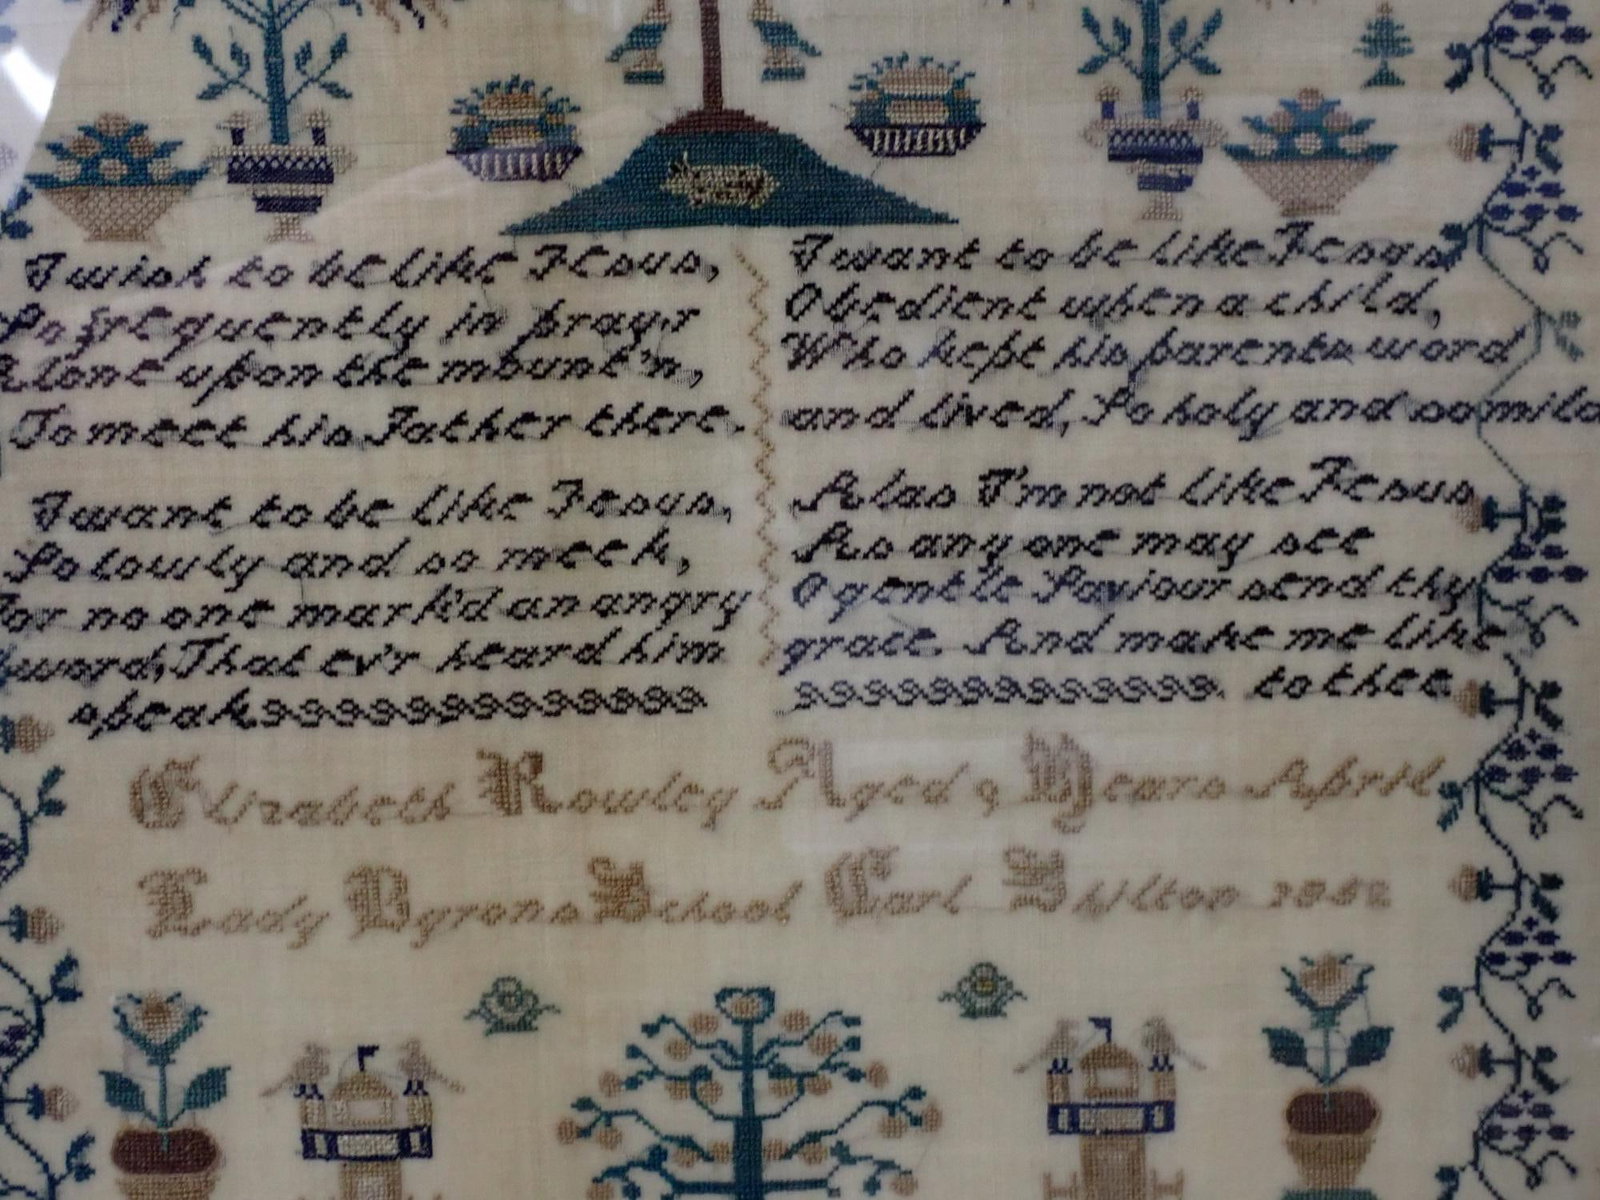 I wish to be like Jesus,
So frequently in pray'r
Alone upon the mount'n,
To meet his Father there.
I want to be like Jesus,
So lowly and so meek,
For no one mark'd an angry
word, That ev'r heard him
speak
I want to be like Jesus
Obedient when a child,
Who kept his parents word
and lived, So holy and so mild
Alas I'm not like Jesus
As any one may see
O gentle Saviour send thy
grace. And make me like
to thee
Elizabeth Rowley Aged 9 Years April
Lady Byrons School Earl Shilton 1852